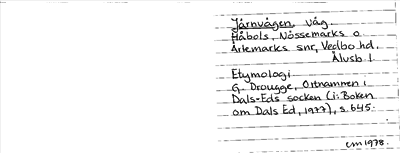 Järnvägen, väg
Håbols, Nössemarks o
Ärtemarks snr, Vedbo hd,
Älvsb l
Etymologi
G. Drougge, Ortnamnen i
Dals-Eds socken (i: Boken
om Dals Ed, 1977), s. 645.
cm 1978.